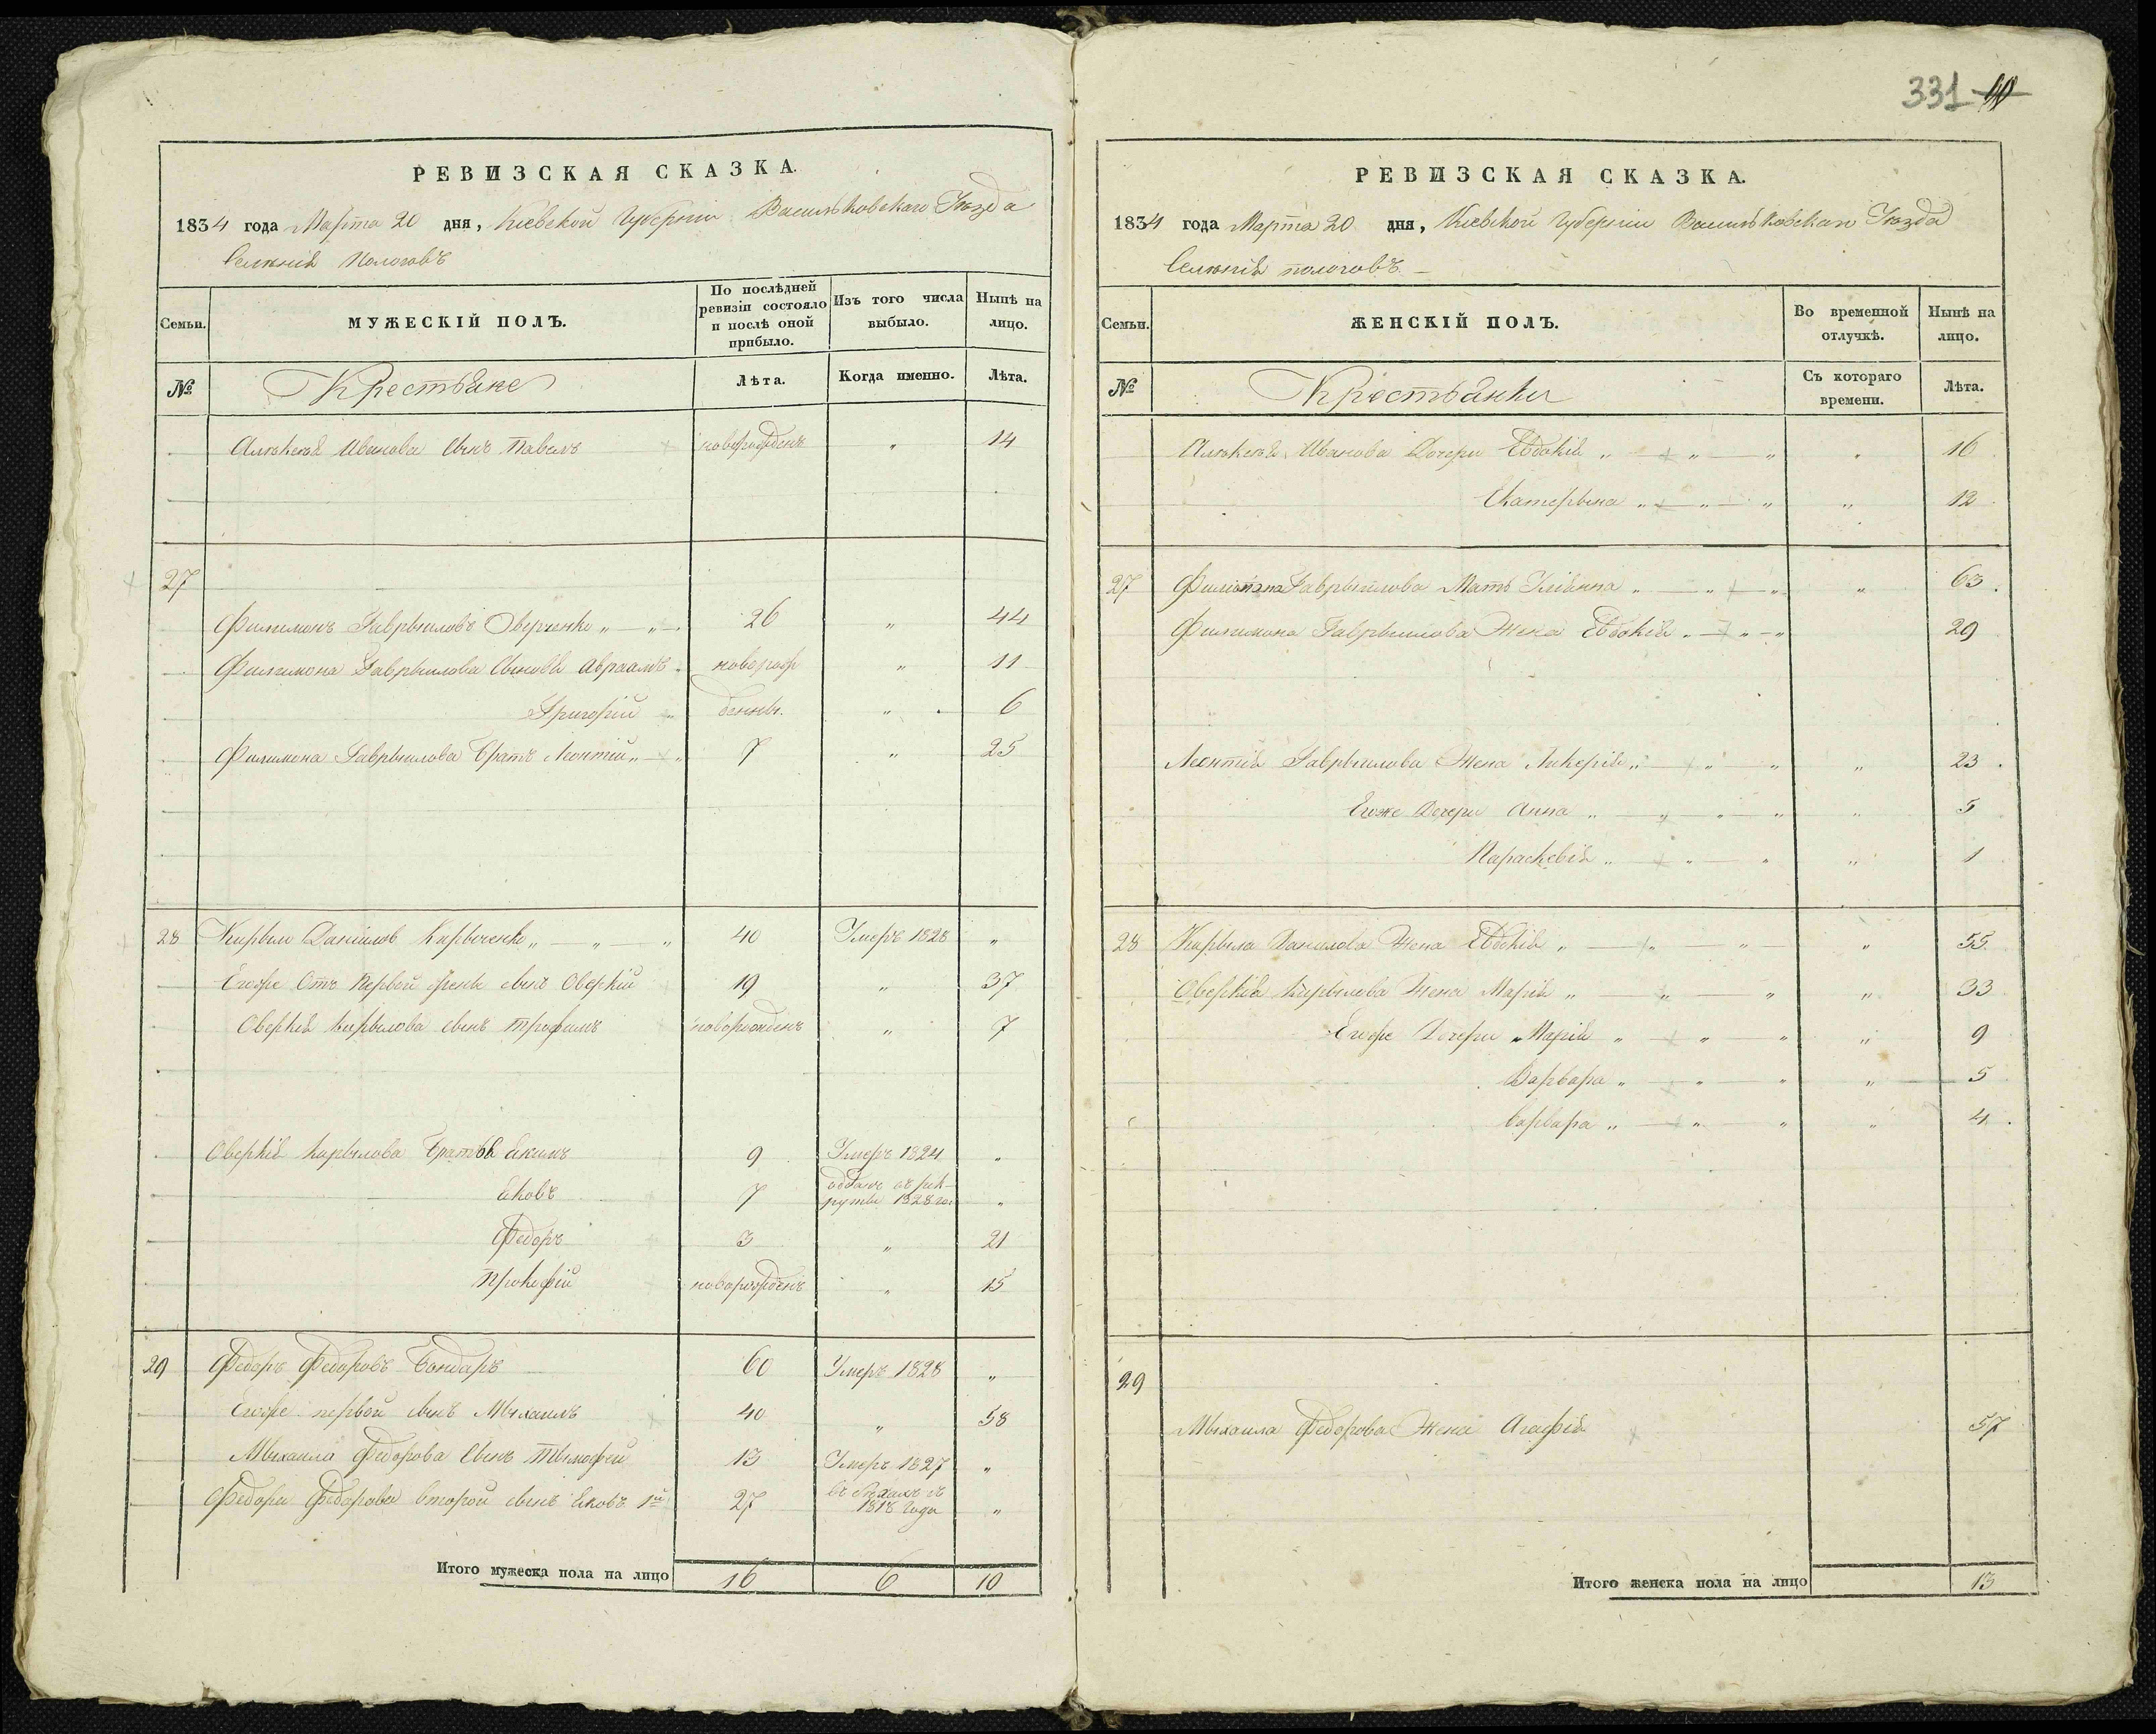 331 40
РЕВИЗСКАЯ СКАЗКА.
1834 года Марта 20 дня, Кіевской Губерніи Васильковскаго Уезда
Селенія Пологовъ
Семьи. МУЖЕСКІЙ ПОЛЪ. По послѣдней ревизіи состояло и послѣ оной прибыло. Изъ того числа выбыло. Нынѣ на лицо.
№ Крестьяне Лѣта. Когда именно. Лѣта.
Алексея Иванова сынъ Павелъ новорожденъ " 14
27
Филимонъ Гаврыловъ Оверченко " — " — 26 " 44
Филимона Гаврылова Сыновья Авраамъ новорож " 11
Григорій " денны. " 6
Филимона Гаврылова Братъ Леонтій " 7 " 25
28 Кирыло Даниловъ Кирыченко " — " — " 40 Умеръ 1828 "
Егоже Отъ Первой жены сынъ Оверкій 19 " 37
Оверкія Кирылова сынъ Трофимъ новорожденъ " 7
Оверкія Кирылова Братья Якимъ 9 Умеръ 1824 "
Яковъ 7 отданъ въ рек-
руты 1828 го "
Федоръ 3 " 21
Прокофій новорожденъ " 15
29 Федоръ Федоровъ Бондаръ 60 Умеръ 1828 "
Егоже первой сынъ Мыхаилъ 40 " 58
Мыхаила Федорова Сынъ Тымофей 13 Умеръ 1827 "
Федора Федорова второй сынъ Яковъ 1й 27 въ бегахъ съ
1818 года "
Итого мужеска пола на лицо 16 6 10
РЕВИЗСКАЯ СКАЗКА.
1834 года Марта 20 дня, Кіевской Губерніи Васильковскаго Уезда
Селенія пологовъ. —
Семьи. ЖЕНСКІЙ ПОЛЪ. Во временной отлучкѣ. Нынѣ на лицо.
№ Крестьянки Съ котораго времени. Лѣта.
Алексея Иванова Дочери Евдокія " — " — " " 16
Екатерына " — " — " " 12
27 Филимона Гаврылова Мать Уліянна " — " — " " 63
Филимона Гаврылова Жена Евдокія " — " — " 29
Леонтія Гаврылова Жена Ликерія " — " — " " 23
Егоже Дочери Анна " — " — " " 5
Параскевія " — " — " " 1
28 Кирыла Данилова Жена Евдокія " — " — " — " 55
Оверкія Кирылова Жена Марія " — " — " " 33
Егоже Дочери Марія " — " — " " 9
Варвара " — " — " " 5
Варвара " — " — " " 4
29
Мыхаила Федорова Жена Агафія 57
Итого женска пола на лицо 13